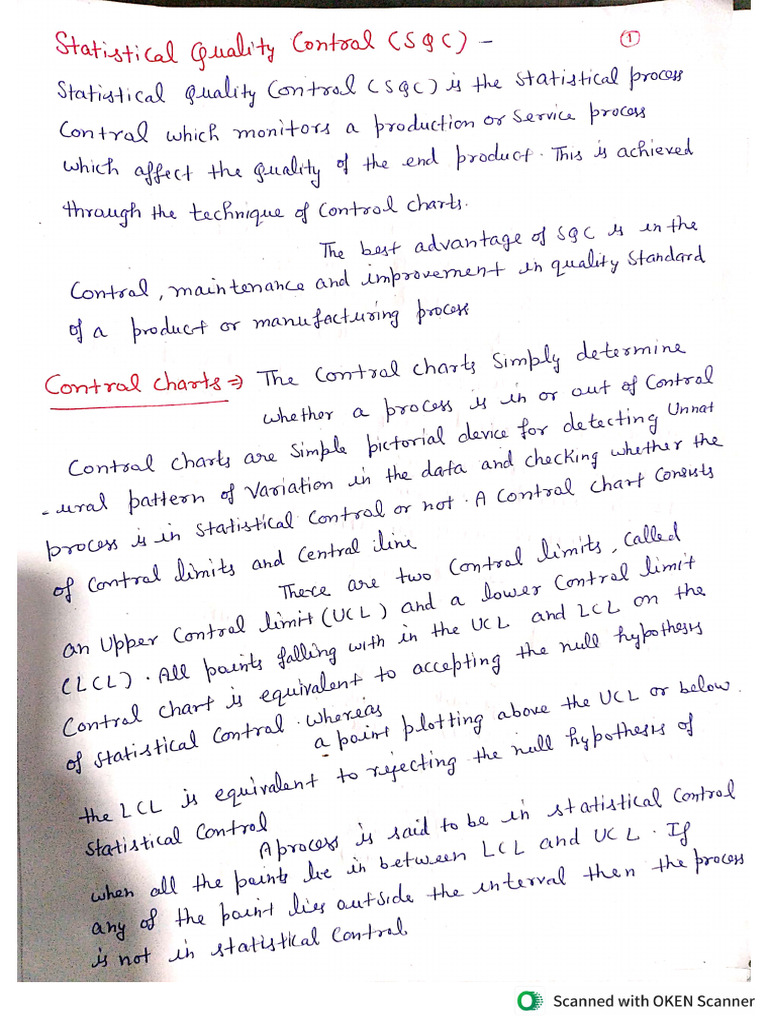 Statistical Quality Control (SQC) -
1
Statistical Quality Control (SQC) is the statistical process
Control which monitors a production or Service process
which affect the quality of the end product. This is achieved
through the technique of Control charts.
The best advantage of SQC is in the
Control, maintenance and improvement in quality Standard
of a product or manufacturing process
Control Charts ⇒ The Control charts Simply determine
whether a process is in or out of Control
Control charts are Simple pictorial device for detecting Unnat
-ural pattern of Variation in the data and checking whether the
process is in Statistical Control or not. A Control chart Consists
of Control limits and Central line
There are two Control limits, Called
an Upper Control limit (UCL) and a lower Control limit
(LCL). All points falling with in the UCL and LCL on the
Control chart is equivalent to accepting the null hypothesis
of Statistical Control. Whereas
a point plotting above the UCL or below
the LCL is equivalent to rejecting the null hypothesis of
Statistical Control
A process is said to be in statistical Control
when all the points lie in between LCL and UCL. If
any of the point lies outside the interval then the process
is not in statistical Control
Scanned with OKEN Scanner